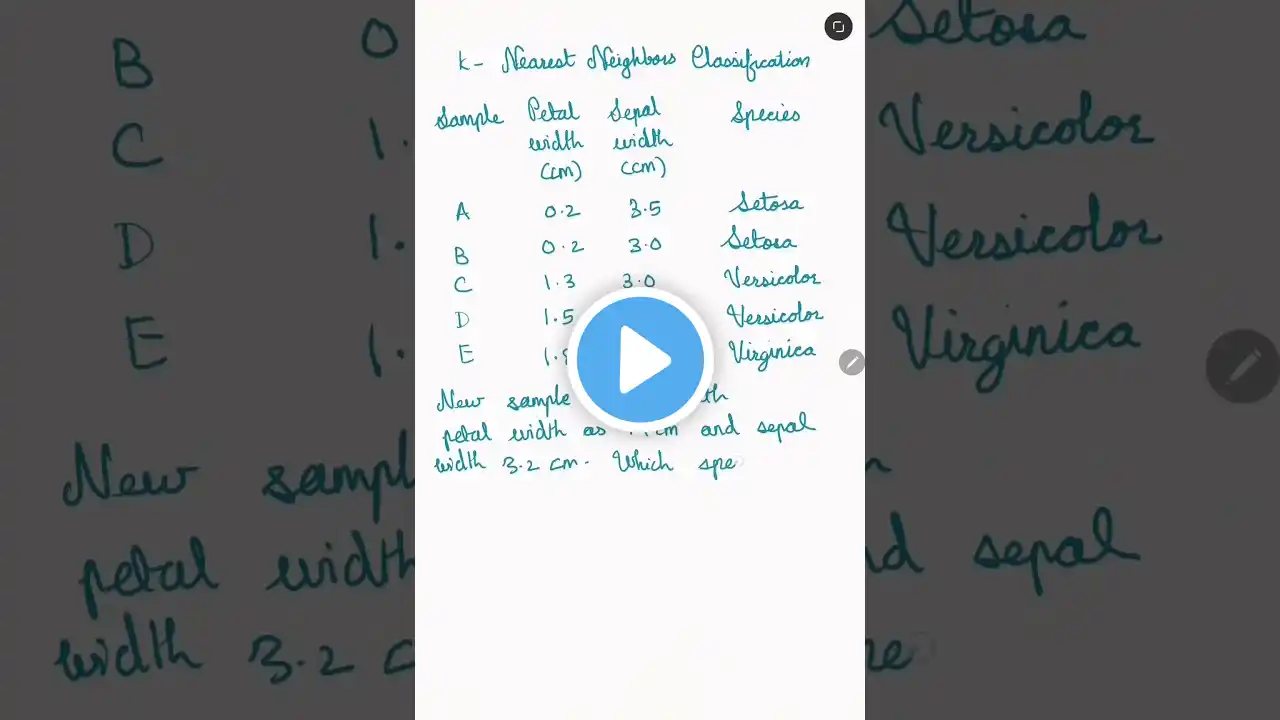 K- Nearest Neighbors Classification
Sample Petal width (cm) Sepal width (cm) Species
A 0.2 3.5 Setosa
B 0.2 3.0 Setosa
C 1.3 3.0 Versicolor
D 1.5 Versicolor
E Virginica
New sample
petal width as cm and sepal
width 3.2 cm. Which